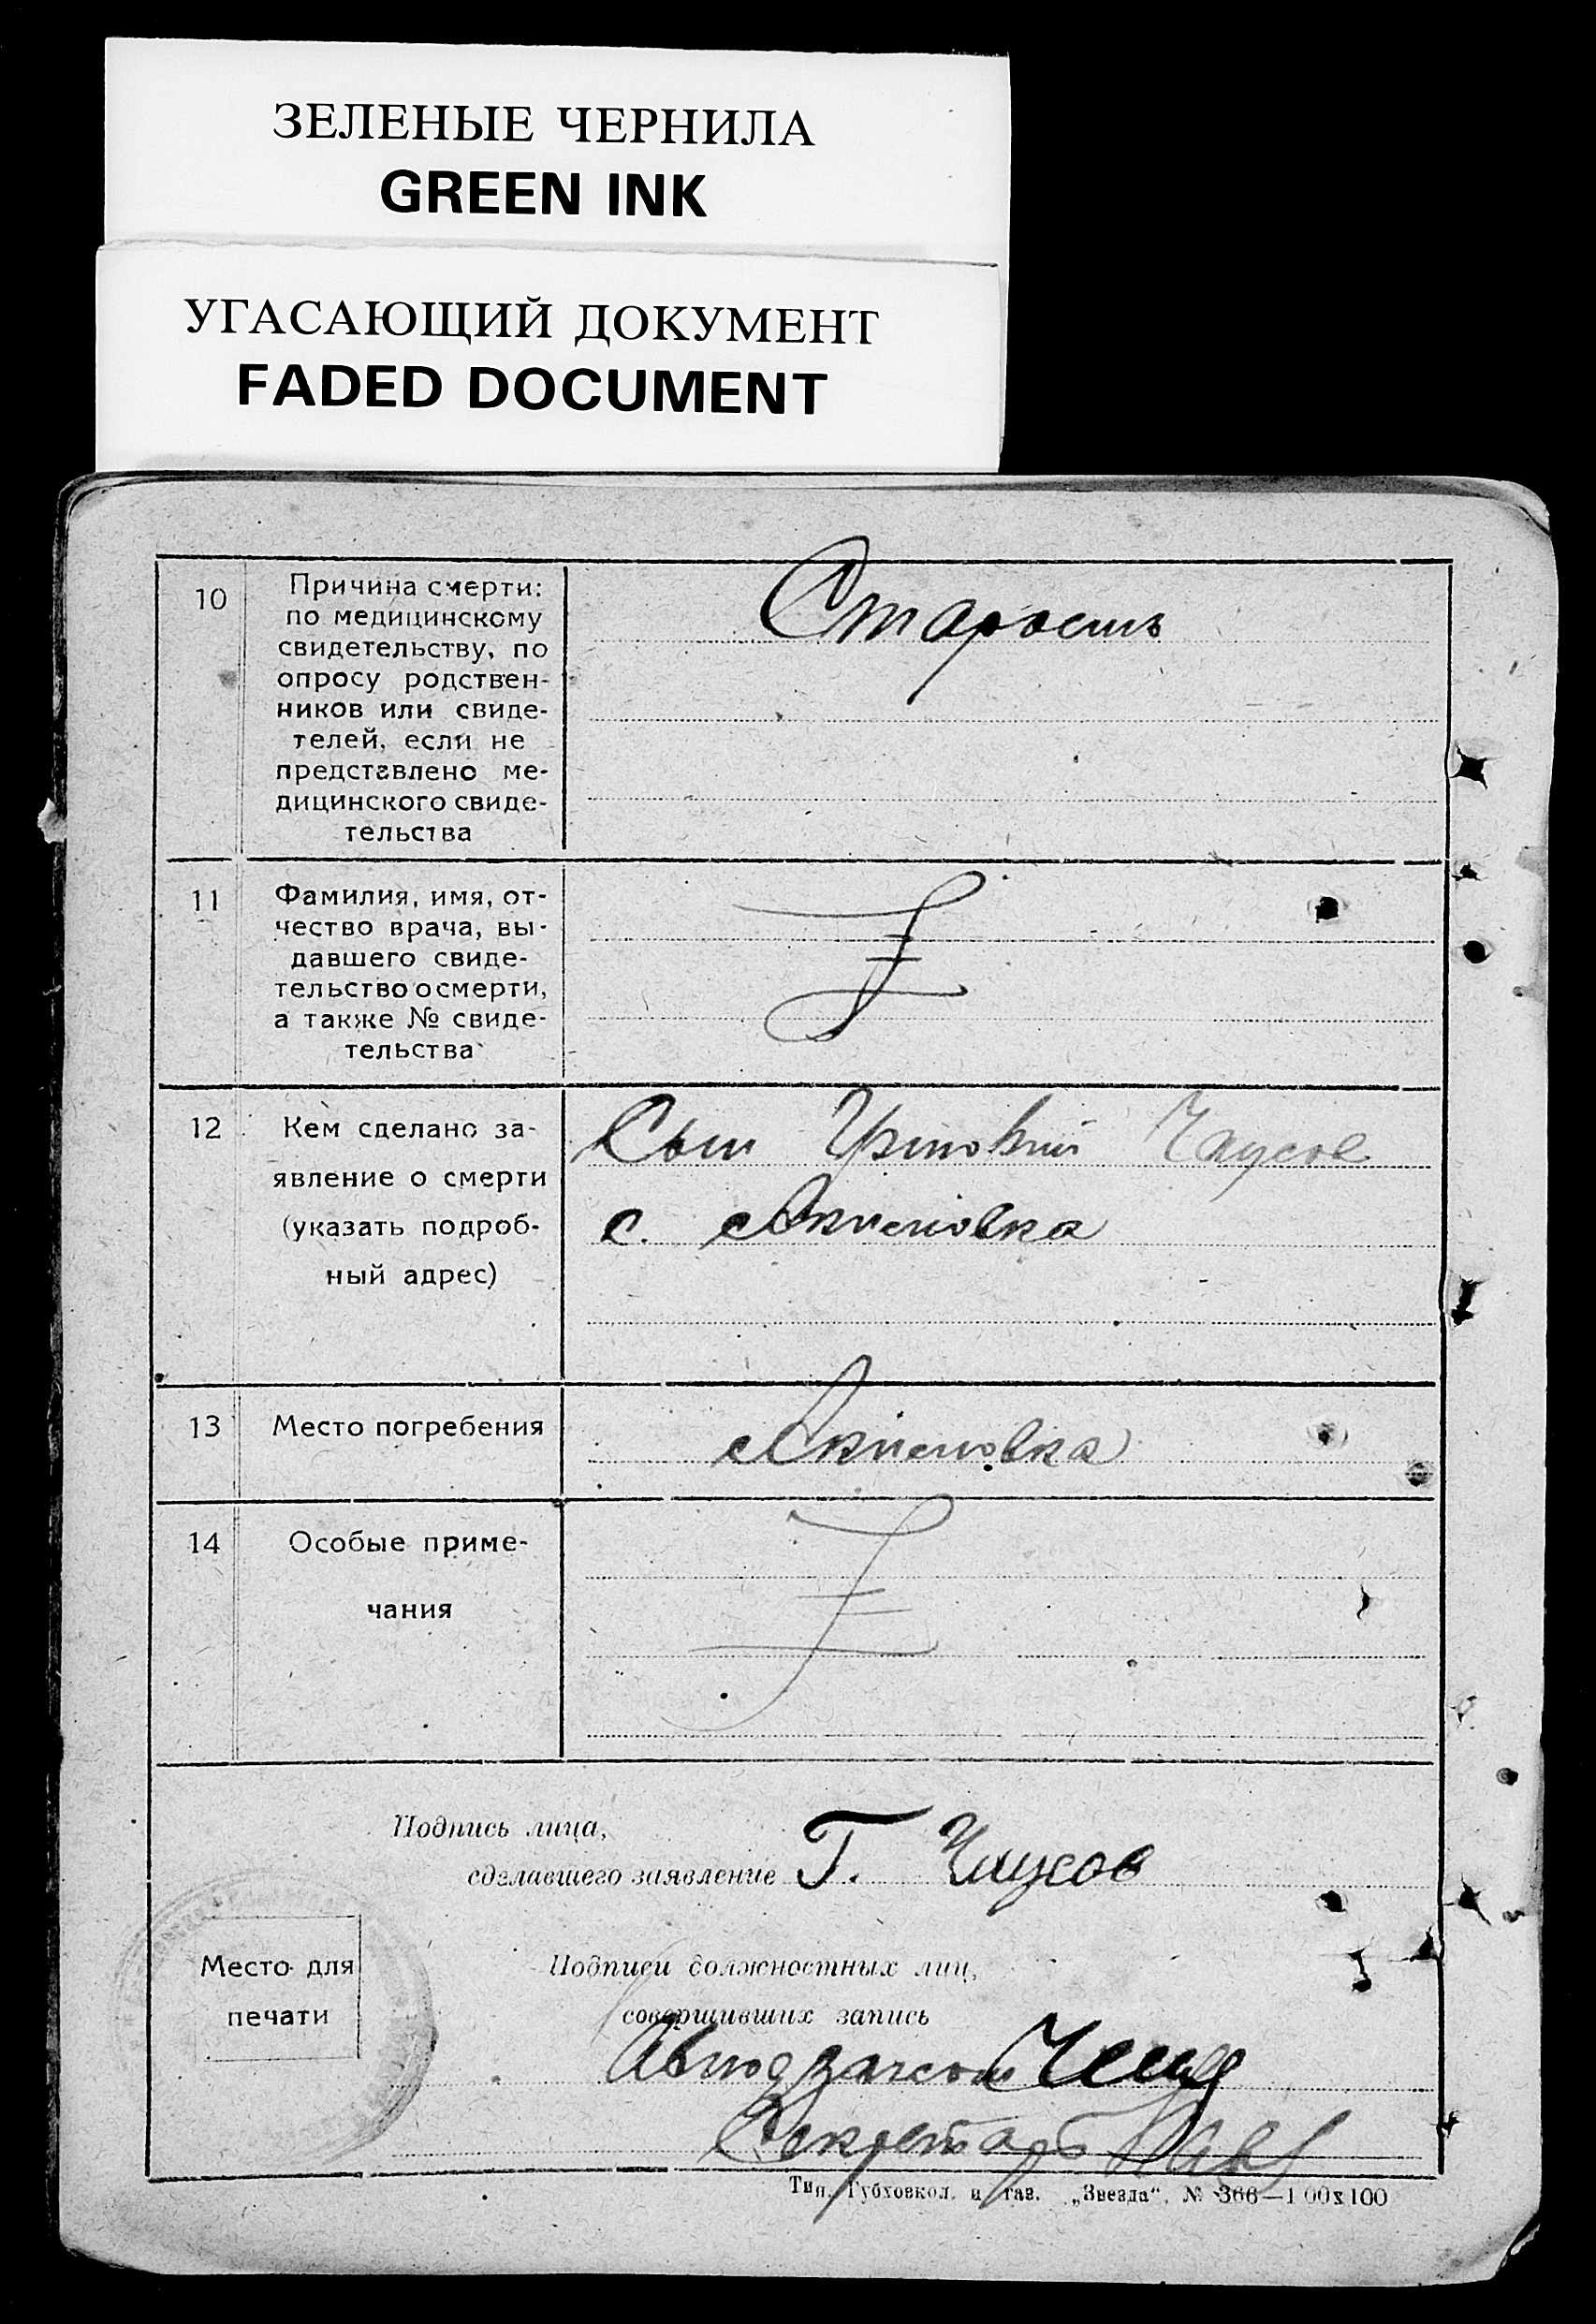 ЗЕЛЕНЫЕ ЧЕРНИЛА
GREEN INK
УГАСАЮЩИЙ ДОКУМЕНТ
FADED DOCUMENT
10
Причина смерти:
по медицинскому
свидетельству, по
опросу родствен-
ников или свиде-
телей, если не
представлено ме-
дицинского свиде-
тельства
Старость
11
Фамилия, имя, от-
чество врача, вы-
давшего свиде-
тельство о смерти,
а также № свиде-
тельства
12
Кем сделано за-
явление о смерти
(указать подроб-
ный адрес)
Сын Чаусов
с.
13
Место погребения
14
Особые приме-
чания
Подпись лица,
сделавшего заявление Г. Чаусов
Место для
печати
Подписи должностных лиц,
совершивших запись
Секретарь
Тип. Губховкол. и газ. „Звезда“, № 366—1 00х100